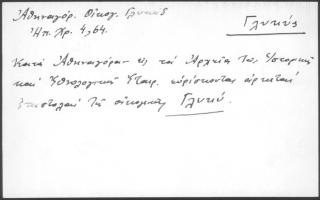 Ἀθηναγόρ. Οἰκογ. Γλυκύς
Γλυκύς
Ἠπ. Χρ. 4, 64.
Κατὰ Ἀθηναγόραν εἰς τὰ Ἀρχεῖα τῆς Ἱστορικῆς
καὶ Ἐθνολογικῆς Ἑταιρ. εὑρίσκονται ἀρκεταὶ
ἐπιστολαὶ τῆς οἰκογενείας Γλυκύ.